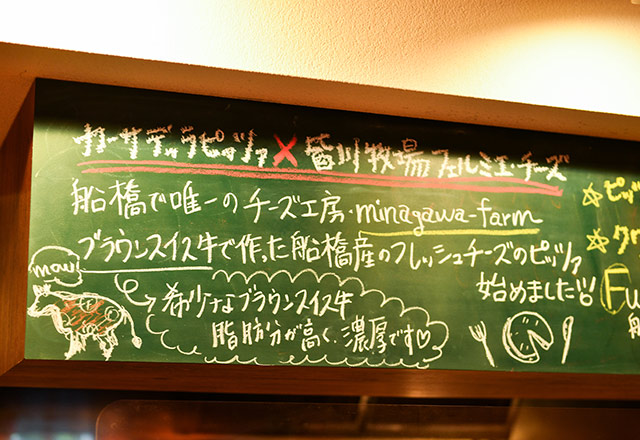 カーサデッラピッツァ×皆川牧場フェルミエ・チーズ
船橋で唯一のチーズ工房・minagawa-farm
ブラウンスイス牛で作った船橋産のフレッシュチーズのピッツァ
始めました!!
mow!
希少なブラウンスイス牛
脂肪分が高く、濃厚です♡
☆ピッ
☆クア
Fu
船